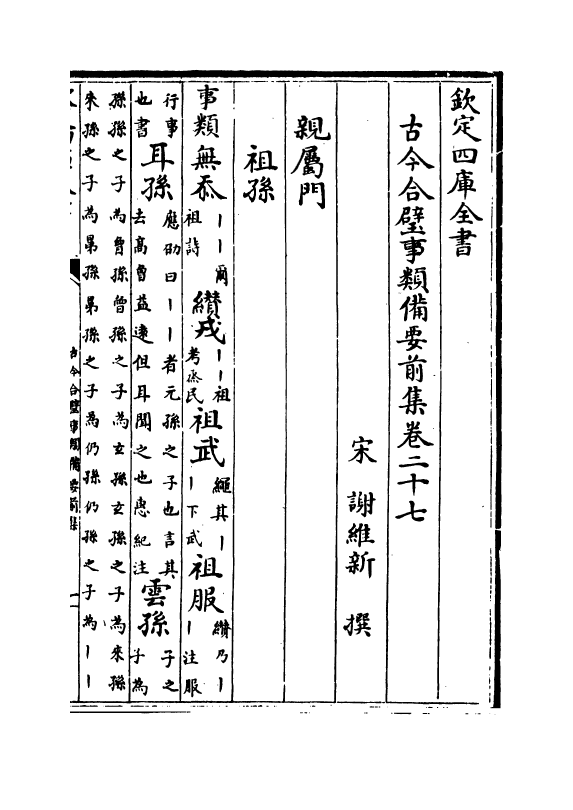 欽定四庫全書
古今合璧事類備要前集卷二十七
宋 謝維新 撰
親屬門
祖孫
事類無忝丨丨爾祖詩纘戎丨丨祖考烝民祖武繩其丨丨下武祖服纘乃丨丨注服
行事也書耳孫應劭曰丨丨者元孫之子也言其去高曾益遠但耳聞之也惠紀注雲孫子之子為
孫孫之子為曾孫曾孫之子為玄孫玄孫之子為來孫
來孫之子為晜孫晜孫之子為仍孫仍孫之子為丨丨
古今合璧事類備要前集